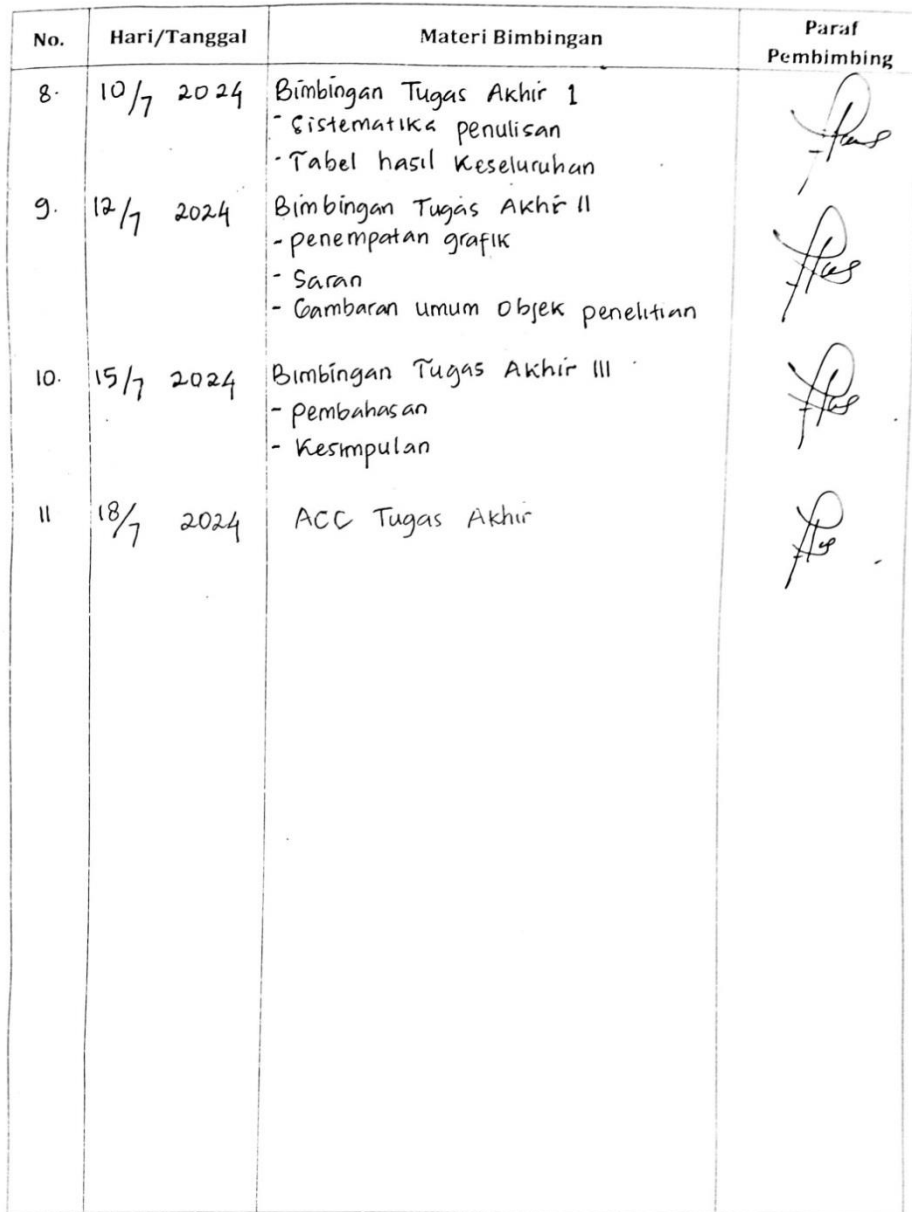 No. Hari/Tanggal Materi Bimbingan Paraf Pembimbing
8. 10/7 2024 Bimbingan Tugas Akhir 1
- Sistematika penulisan
- Tabel hasil Keseluruhan
9. 12/7 2024 Bimbingan Tugas Akhir II
- penempatan grafik
- Saran
- Gambaran umum Objek penelitian
10. 15/7 2024 Bimbingan Tugas Akhir III
- pembahasan
- Kesimpulan
11 18/7 2024 ACC Tugas Akhir